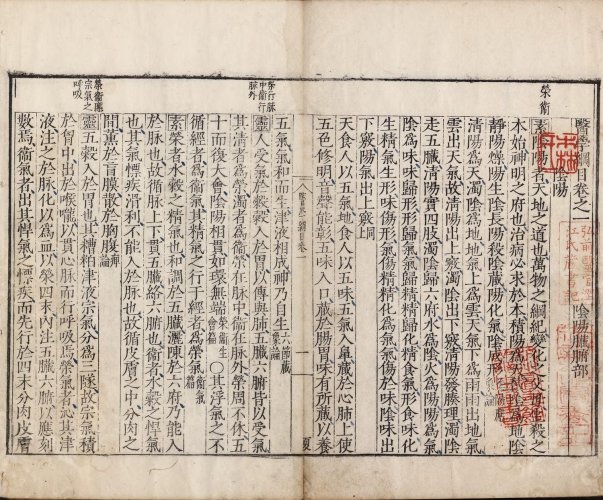 醫學綱目卷之一　陰陽臟腑部
陰陽
榮衞
素陰陽者天地之道也萬物之綱紀變化之父母生殺之
本始神明之府也治病必求於本積陽為天積陰為地陰
靜陽燥陰生陽長陽殺陰藏陽化氣陰成形
清陽為天濁陰為地地氣上為雲天氣下為雨雨出地氣
雲出天氣故清陽出上竅濁陰出下竅清陽發腠理濁陰
走五臟清陽實四肢濁陰歸六府水為陰火為陽陽為氣
陰為味味歸形形歸氣氣歸精精歸化精食氣形食味化
生精氣生形味傷形氣傷精精化為氣氣傷於味陰味出
下竅陽氣出上竅同上
天食人以五氣地食人以五味五氣入鼻藏於心肺上使
五色修明音聲能彰五味入口藏於腸胃味有所藏以養
醫學綱目卷一　一　夏
五氣氣和而生津液相成神乃自生六節藏象論
榮行脉中衞行脉外
靈人受氣於穀穀入於胃以傳與肺五臟六腑皆以受氣
其清者為榮濁者為衞榮在脉中衞在脉外榮周不休五
十而復大會陰陽相貫如環無端榮衞生會篇○其浮氣之不
循經者為衞氣其精氣之行于經者為榮氣衞氣篇
素榮者水穀之精氣也和調於五臟灑陳於六府乃能入
於脉也故循脉上下貫五臟絡六腑也衞者水穀之悍氣
也其氣慓疾滑利不能入於脉也故循皮膚之中分肉之
間薰於肓膜散於胸腹痺論
榮衞應宗氣之呼吸
靈五穀入於胃也其糟粕津液宗氣分為三隧故宗氣積
於胷中出於喉嚨以貫心脉而行呼吸焉榮氣者泌其津
液注之於脉化以為血以榮四末內注五臟六腑以應刻
數焉衞氣者出其悍氣之慓疾而先行於四末分肉皮膚